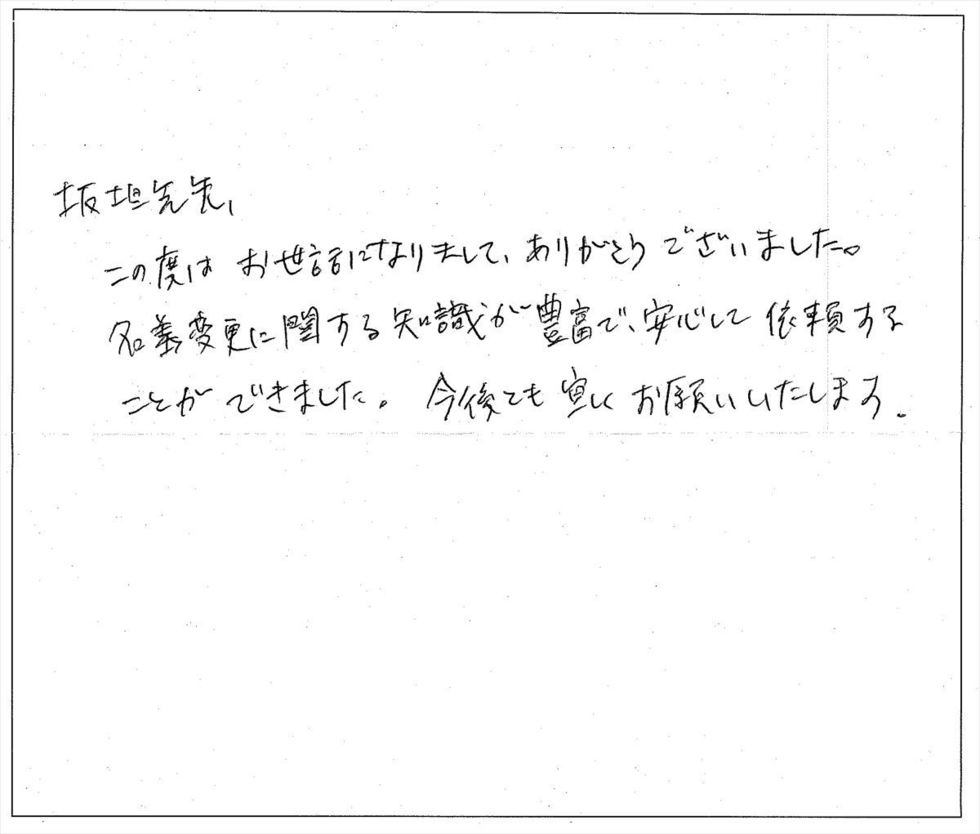 坂垣先生、
この度は お世話になりまして、ありがとうございました。
名義変更に関する知識が豊富で、安心して依頼する
ことができました。今後とも宜しくお願いいたします。